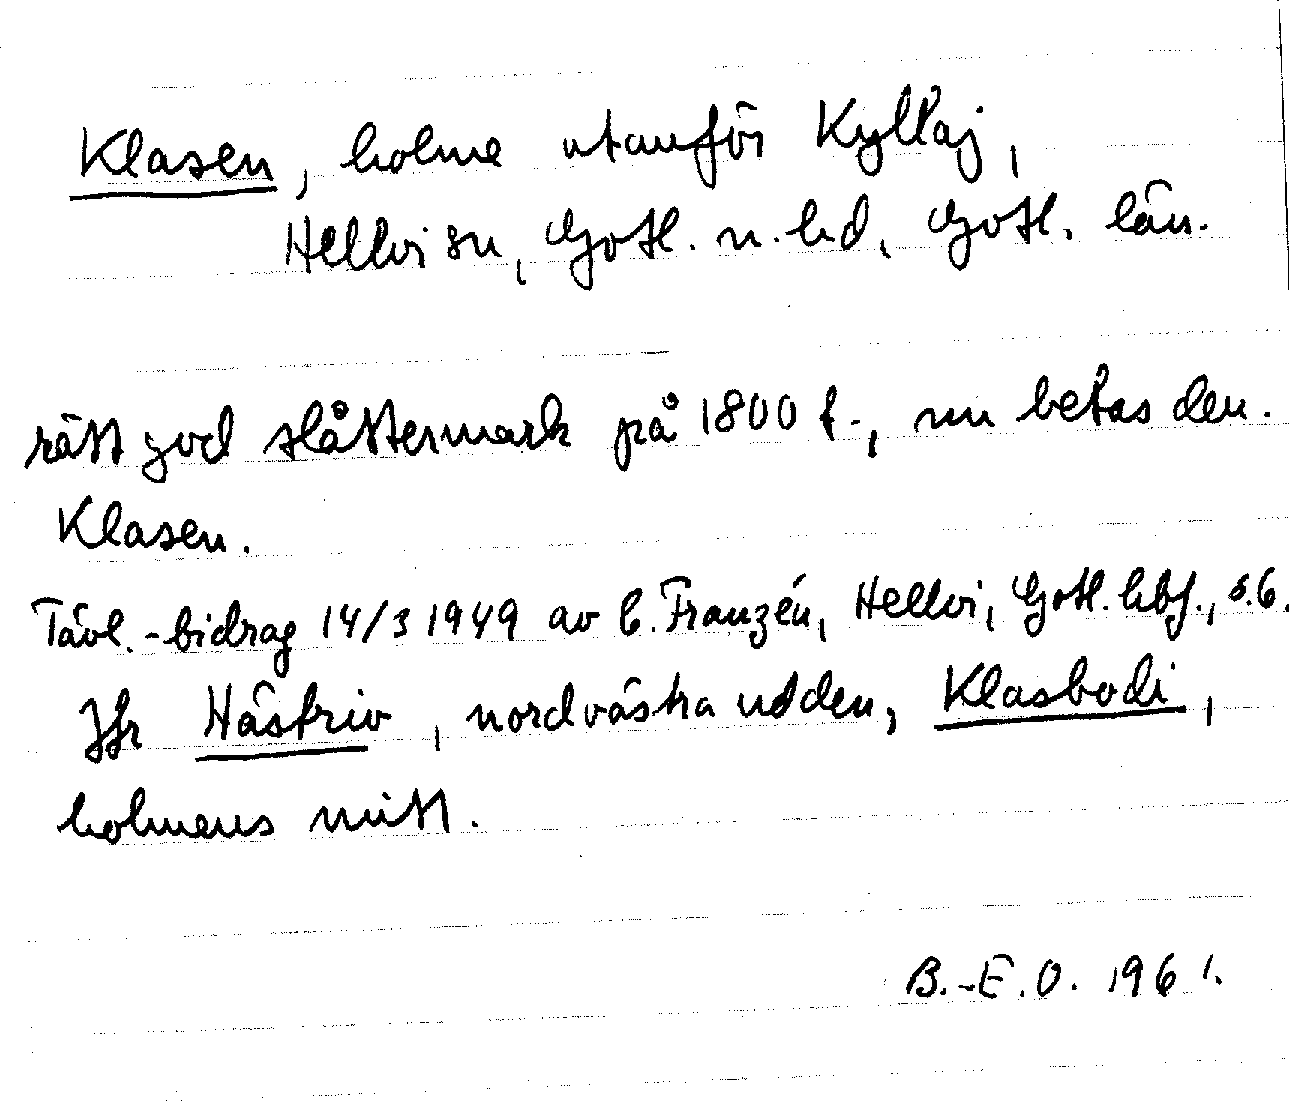 Klasen, holme utanför Kyllaj,
Hellvi sn, Gotl. n. hd, Gotl. län.
rätt god slåttermark på 1800 t., nu betas den.
Klasen.
Tävl.-bidrag 14/3 1949 av C. Franzén, Hellvi, Gotl. hbf., s.6.
Jfr Hästriv, nordvästra udden, Klasbodi,
holmens mitt.
B.-E.O. 1961.